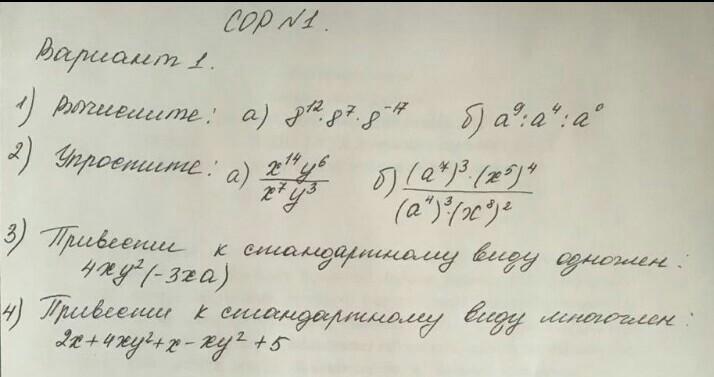 СОР №1.
Вариант 1.
1) Вычислите: а) 8¹²·8⁷·8⁻¹⁷ б) a⁹:a⁴:a⁰
2) Упростите: а) x¹⁴y⁶/x⁷y³ б) (a⁷)³·(x⁵)⁴/(a⁴)³·(x⁸)²
3) Привести к стандартному виду одночлен:
4xy²(-3xa)
4) Привести к стандартному виду многочлен:
2x+4xy²+x-xy²+5